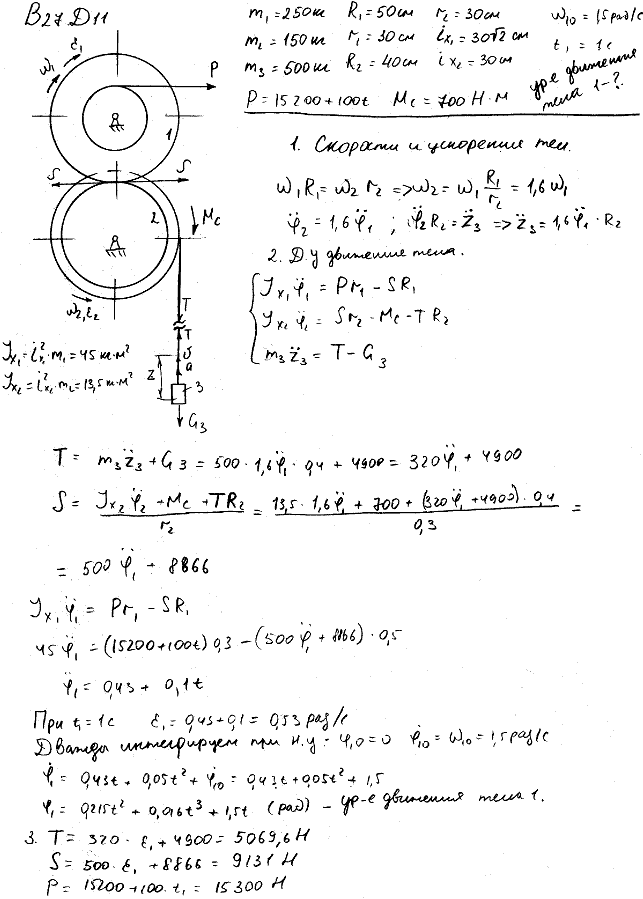 В27 Д11
m₁ = 250 кг R₁ = 50 см r₂ = 30 см ω₁₀ = 1,5 рад/с
m₂ = 150 кг r₁ = 30 см iₓ₁ = 30√2 см t₁ = 1 с
m₃ = 500 кг R₂ = 40 см iₓ₂ = 30 см ур-е движения
P = 15200 + 100t Mc = 700 Н·м тела 1 - ?
ω₁ ε₁
P
1
S S
2 Mc
ω₂, ε₂
T
T
v
a
z
3
G₃
Jₓ₁ = i²ₓ₁·m₁ = 45 кг·м²
Jₓ₂ = i²ₓ₂·m₂ = 13,5 кг·м²
1. Скорости и ускорения тел.
ω₁R₁ = ω₂r₂ => ω₂ = ω₁ R₁/r₂ = 1,6ω₁
φ̈₂ = 1,6φ̈₁ ; φ̈₂R₂ = z̈₃ => z̈₃ = 1,6φ̈₁·R₂
2. Д.у движение тела.
Jₓ₁φ̈₁ = Pr₁ - SR₁
Jₓ₂φ̈₂ = Sr₂ - Mc - TR₂
m₃z̈₃ = T - G₃
T = m₃z̈₃ + G₃ = 500·1,6φ̈₁·0,4 + 4900 = 320φ̈₁ + 4900
S = (Jₓ₂φ̈₂ + Mc + TR₂)/r₂ = (13,5·1,6φ̈₁ + 700 + (320φ̈₁ + 4900)·0,4)/0,3 =
= 500φ̈₁ + 8866
Jₓ₁φ̈₁ = Pr₁ - SR₁
45φ̈₁ = (15200 + 100t)0,3 - (500φ̈₁ + 8866)·0,5
φ̈₁ = 0,43 + 0,1t
При t₁ = 1 с ε₁ = 0,43 + 0,1 = 0,53 рад/с
Дважды интегрируем при н.у: φ₁₀ = 0 φ̇₁₀ = ω₁₀ = 1,5 рад/с
φ̇₁ = 0,43t + 0,05t² + φ̇₁₀ = 0,43t + 0,05t² + 1,5
φ₁ = 0,215t² + 0,016t³ + 1,5t (рад) - ур-е движения тела 1.
3. T = 320·ε₁ + 4900 = 5069,6 Н
S = 500·ε₁ + 8866 = 9131 Н
P = 15200 + 100·t₁ = 15300 Н